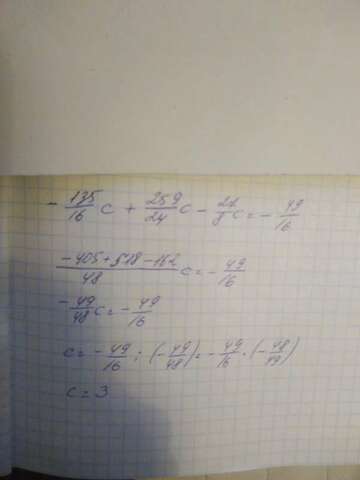 - 135/16 c + 259/24 c - 27/8 c = - 49/16
(- 405 + 518 - 162)/48 c = - 49/16
- 49/48 c = - 49/16
c = - 49/16 : (- 49/48) = - 49/16 · (- 48/49)
c = 3